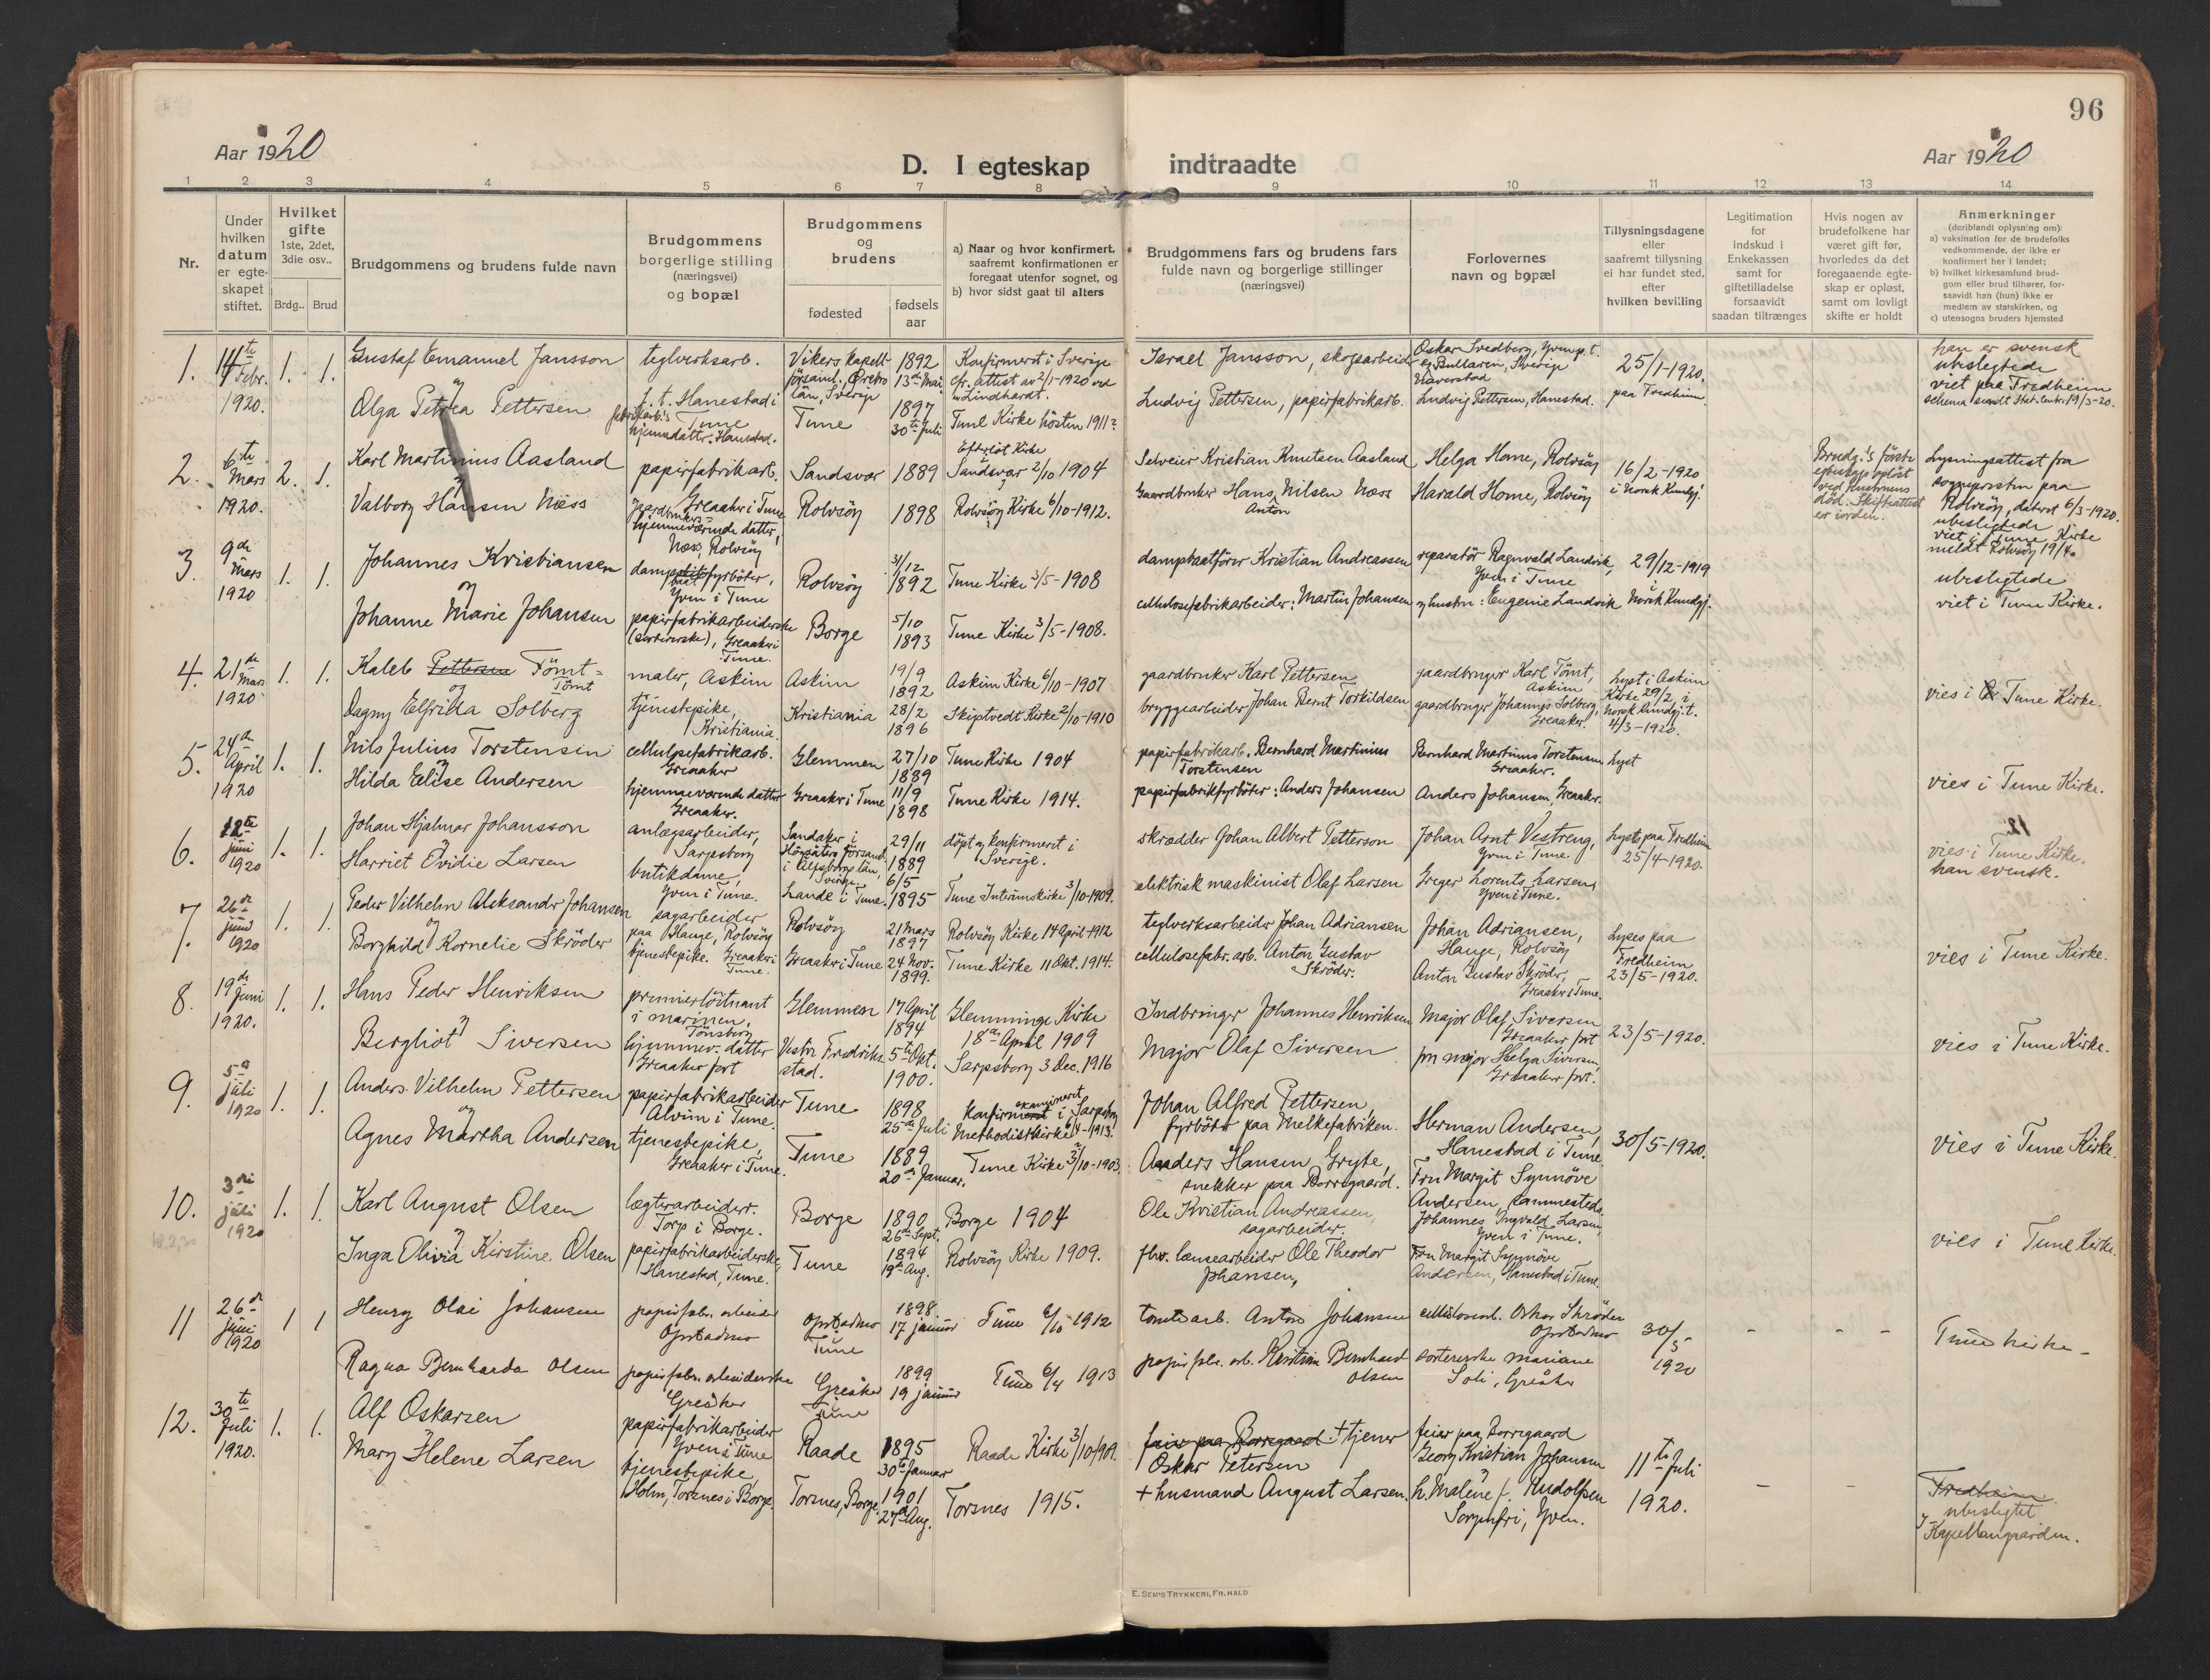 96
Aar 1920
D. I egteskap indtraadte
Aar 1920
1 2 3 4 5 6 7 8 9 10 11 12 13 14
Nr.
Under hvilken datum er egteskapet stiftet.
Hvilket gifte
1ste, 2det, 3die osv..
Brdg.. Brud
Brudgommens og brudens fulde navn
Brudgommens borgerlige stilling (næringsvei) og bopæl
Brudgommens og brudens
fødested
fødsels aar
a) Naar og hvor konfirmert, saafremt konfirmationen er foregaat utenfor sognet, og
b) hvor sidst gaat til alters
Brudgommens fars og brudens fars
fulde navn og borgerlige stillinger
(næringsvei)
Forlovernes
navn og bopæl
Tillysningsdagene eller saafremt tillysning ei har fundet sted, efter hvilken bevilling
Legitimation for indskud i Enkekassen samt for giftetilladelse forsaavidt saadan tiltrænges
Hvis nogen av brudefolkene har været gift før, hvorledes da det foregaaende egteskap er opløst, samt om lovligt skifte er holdt
Anmerkninger
(deriblandt oplysning om):
a) vaksination for de brudefolks vedkommende, der ikke er konfirmert her i landet;
b) hvilket kirkesamfund brudgom eller brud tilhører, forsaavidt han (hun) ikke er medlem av statskirken, og
c) utensogns bruders hjemsted
1. 14te Febr. 1920. 1. 1.
Gustaf Emanuel Jansson
og
Olga Petrea Pettersen
teglverksarb.
f. t. Hanestad i Tune
fabrikarb.'s hjemmdatter. Hanestad.
Vikers kapellförsaml., Örebro län, Sverige
Tune
1892 13de Mai
1897 30te Juli
Konfirmert i Sverige
cfr. attest av 2/1-1920 ved Lindhardt.
Tune Kirke høsten 1911?
Israel Jansson, skogsarbeider
Ludvig Pettersen, papirfabrikarb.
Oskar Svedberg, Yven p. t.
og Bullaren, Sverige
Naverstad
Ludvig Pettersen, Hanestad.
25/1-1920.
paa Fredheim.
han er svensk
ubeslegtede
viet paa Fredheim
schema sendt Stat. Centr. 19/3-20.
2. 6te Mars 1920. 2. 1.
Karl Martinius Aasland
og
Valborg Hansen Næss
papirfabrikarb.
Greaaker i Tune
Gaardbrukers hjemmeværende datter,
Næs, Rolvsøy
Sandsvær
Rolvsöy
1889
1898
Efteløt Kirke
Sandsvær 2/10 1904
Rolvsöy Kirke 6/10-1912.
Selveier Kristian Knutsen Aasland
Gaardbruker Hans Nilsen Næss
Anton
Helga Home, Rolvsöy
Harald Home, Rolvsöy
16/2-1920
i Norsk Kundgj.
Brudg.'s förste egteskap oplöst ved hustruens död. Skifteattest er iorden.
Lysningsattest fra sogneprest en paa Rolvsöy, dateret 6/3-1920.
ubeslegtede
viet i Tune Kirke
meldt Rolvsöy 19/4.
3. 9de Mars 1920 1. 1.
Johannes Kristiansen
og
Johanne Marie Johansen
dampbaatfyrböter,
Yven i Tune
papirfabrikarbeiderske
(sorterarske), Greaaker i Tune.
Rolvsöy
Borge
31/12 1892
5/10 1893
Tune Kirke 3/5-1908
Tune Kirke 3/5-1908.
dampbaatförer Kristian Andreassen
cellulosefabrikarbeider: Martin Johansen
reparatör Ragnvald Landvik,
Yven i Tune
og hustru: Eugenie Landvik
29/12-1919
i
Norsk Kundgj.
ubeslegtede
viet i Tune Kirke.
4. 21de Mars 1920 1. 1.
Kaleb Pettersen Tömt=
Tömt
og
Dagny Elfrida Solberg
maler, Askim
tjenestepike,
Kristiania.
Askim
Kristiania
19/9 1892
28/2 1896
Askim Kirke 6/10-1907
Skiptvedt Kirke 2/10-1910
gaardbruker Karl Pettersen
bryggearbeider Johan Bernt Torkildsen
gaardbruger Karl Tömt,
Askim
gaardbruger Johannes Solberg,
Greaaker.
Lyst i Askim Kirke 29/2 i
Norsk Kundgj. t.
4/3-1920.
vies i Tune Kirke.
5. 24de April 1920 1. 1.
Nils Julius Torstensen
og
Hilda Elise Andersen
cellulosefabrikarb.
Greaaker
hjemmeværende datter
Greaaker.
Glemmen
Greaaker i Tune
27/10 1889
11/9 1898
Tune Kirke 1904
Tune Kirke 1914.
papirfabrikarb. Bernhard Martinius
Torstensen
papirfabrikfyrböter: Anders Johansen
Bernhard Martinius Torstensen
Greaaker.
Anders Johansen, Greaaker.
Lyst
vies i Tune Kirke.
6. 12te juni 1920 1. 1.
Johan Hjalmar Johansson
og
Harriet Ovidie Larsen
anlægsarbeider,
Sarpsborg
butikdame,
Yven i Tune.
Sandaker i Högsäters församl. i Älfsborgs län, Sverige.
Lande i Tune.
29/11 1889
6/5 1895
döpt og konfirmeret i
Sverige.
Tune Interimskirke 3/10-1909.
skrædder Johan Albert Petterson
elektrisk maskinist Olaf Larsen
Johan Arnt Vestreng,
Yven i Tune.
Greger Lorents Larsen,
Yven i Tune.
Lyst paa Fredheim
25/4-1920.
12.
vies i Tune Kirke.
han svensk.
7. 26de juni 1920 1. 1.
Peder Vilhelm Aleksander Johansen
og
Borghild Kornelie Skröder
sagarbeider
paa Hauge, Rolvsöy
tjenestepike. Greaaker i Tune.
Rolvsöy
Greaaker i Tune
21 Mars 1897
24 Nov. 1899.
Rolvsöy Kirke 14 April-1912
Tune Kirke 11 Okt. 1914.
teglverksarbeider Johan Adriansen
cellulosefabr. arb. Anton Gustav
Skröder.
Johan Adriansen,
Hauge, Rolvsöy
Anton Gustav Skröder,
Greaaker i Tune.
Lyses paa
Fredheim
23/5-1920.
vies i Tune Kirke.
8. 19de Juni 1920. 1. 1.
Hans Peder Henriksen
og
Bergliot Siversen
premierlöitnant
i marinen,
Tönsberg
hjemmev. datter
Greaaker fort
Glemmen
Vestre Fredrikstad.
17 April 1894
5te Okt. 1900.
Glemminge Kirke
18de April 1909
Sarpsborg 3 Dec. 1916
Indbringer Johannes Henriksen
Major Olaf Siversen
Major Olaf Siversen
Greaaker fort
fru major Helga Siversen,
Greaaker fort.
23/5-1920.
vies i Tune Kirke.
9. 5te juli 1920 1. 1.
Anders Vilhelm Pettersen
og
Agnes Martha Andersen
papirfabrikarbeider
Alvim i Tune.
tjenestepike,
Greaaker i Tune.
Tune
Tune
1898 25de Juli
1889 20de Januar.
Konfirmert i Sarpsborg
Methodistkirke 6/4-1913.
Tune Kirke 3/10-1903.
Johan Alfred Pettersen,
fyrböter paa Melkefabriken.
Anders Hansen Gryte,
snekker paa Borregaard.
Herman Andersen,
Hanestad i Tune.
Fru Margit Synnöve
Andersen, sammesteds.
30/5-1920.
vies i Tune Kirke.
10. 3die juli 1920 1. 1.
Karl August Olsen
og
Inga Olivia Kirstine Olsen
lægterarbeider.
Torp i Borge.
papirfabrikarbeiderske,
Hanestad, Tune.
Borge
Tune
1890 26de Sept.
1894 19de Aug.
Borge 1904
Rolvsöy Kirke 1909.
Ole Kristian Andreassen,
sagarbeider.
fhv. lensearbeider Ole Theodor
Johansen,
Johannes Ingvald Larsen,
Yven i Tune.
Fru Margit Synnöve
Andersen, Hanestad i Tune.
vies i Tune Kirke.
11 26de juni 1920 1 1
Henry Olai Johansen
Ragna Bernharda Olsen
papirfabr. arbeider
Opstadmo
papirfabr. arbeiderske
Greåker
Opstadmo
Tune
Greåker
Tune
1898. 17 januar
1899 19 januar
Tune 6/10-1912
Tune 6/4 1913
tomtearb. Anton Johansen
papirfabr. arb. Kristian Bernhard
Olsen
cellulosearb. Oskar Skröder
Opstadmo
sortererske Mariane
Soli, Greåker
30/5-
1920
- - -
Tune kirke -
12. 30te Juli 1920. 1. 1.
Alf Oskarsen
og
Mary Helene Larsen
papirfabrikarbeider
Yven i Tune
tjenestepike,
Holm, Torsnes i Borge.
Raade
Torsnes, Borge.
1895 30te Januar
1901 27de Aug.
Raade Kirke 3/10 1909.
Torsnes 1915.
feier paa Borregaard + tjener
Oskar Petersen
+ husmand August Larsen.
feier paa Borregaard
Georg Kristian Johansen
h. Malene f. Rudolfsen
Sorgenfri, Yven.
11te Juli
1920.
- -
Fredheim
ubeslegtet
I Kapellangaarden.
E. SEM'S TRYKKERI, FR.HALD